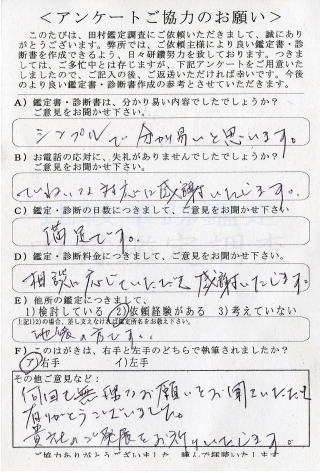 ＜アンケートご協力のお願い＞
このたびは、田村鑑定調査にご依頼いただきまして、誠にあり
がとうございます。弊所では、ご依頼主様により良い鑑定書・診
断書を作成できるよう、日々研鑽努力を致しております。つきま
しては、ご多忙中とは存じますが、下記アンケートをご用意いた
しましたので、ご記入の後、ご返送いただければ幸いです。今後
のより良い鑑定書・診断書作成の参考とさせていただきます。
A）鑑定書・診断書は、分かり易い内容でしたでしょうか？
ご意見をお聞かせ下さい
シンプルで分かり易いと思います。
B）お電話の応対に、失礼がありませんでしたでしょうか？
ご意見をお聞かせ下さい
ていねいな対応に感謝いたします。
C）鑑定・診断の日数につきまして、ご意見をお聞かせ下さい
満足です。
D）鑑定・診断料金につきまして、ご意見をお聞かせ下さい
相談に応じていただき感謝いたします。
E）他所の鑑定につきまして、
1）検討している 2）依頼経験がある 3）考えていない
上記1)2)の場合、差し支えなければ鑑定所名をお教え下さい。
の方です。
F）このはがきは、右手と左手のどちらで執筆されましたか？
ア）右手 イ）左手
その他ご意見など：
何回も無理なお願いをお聞きいただき
ありがとうございました。
貴社のご発展をお祈りいたします。
ご協力ありがとうございました。謹んで拝聴いたします。